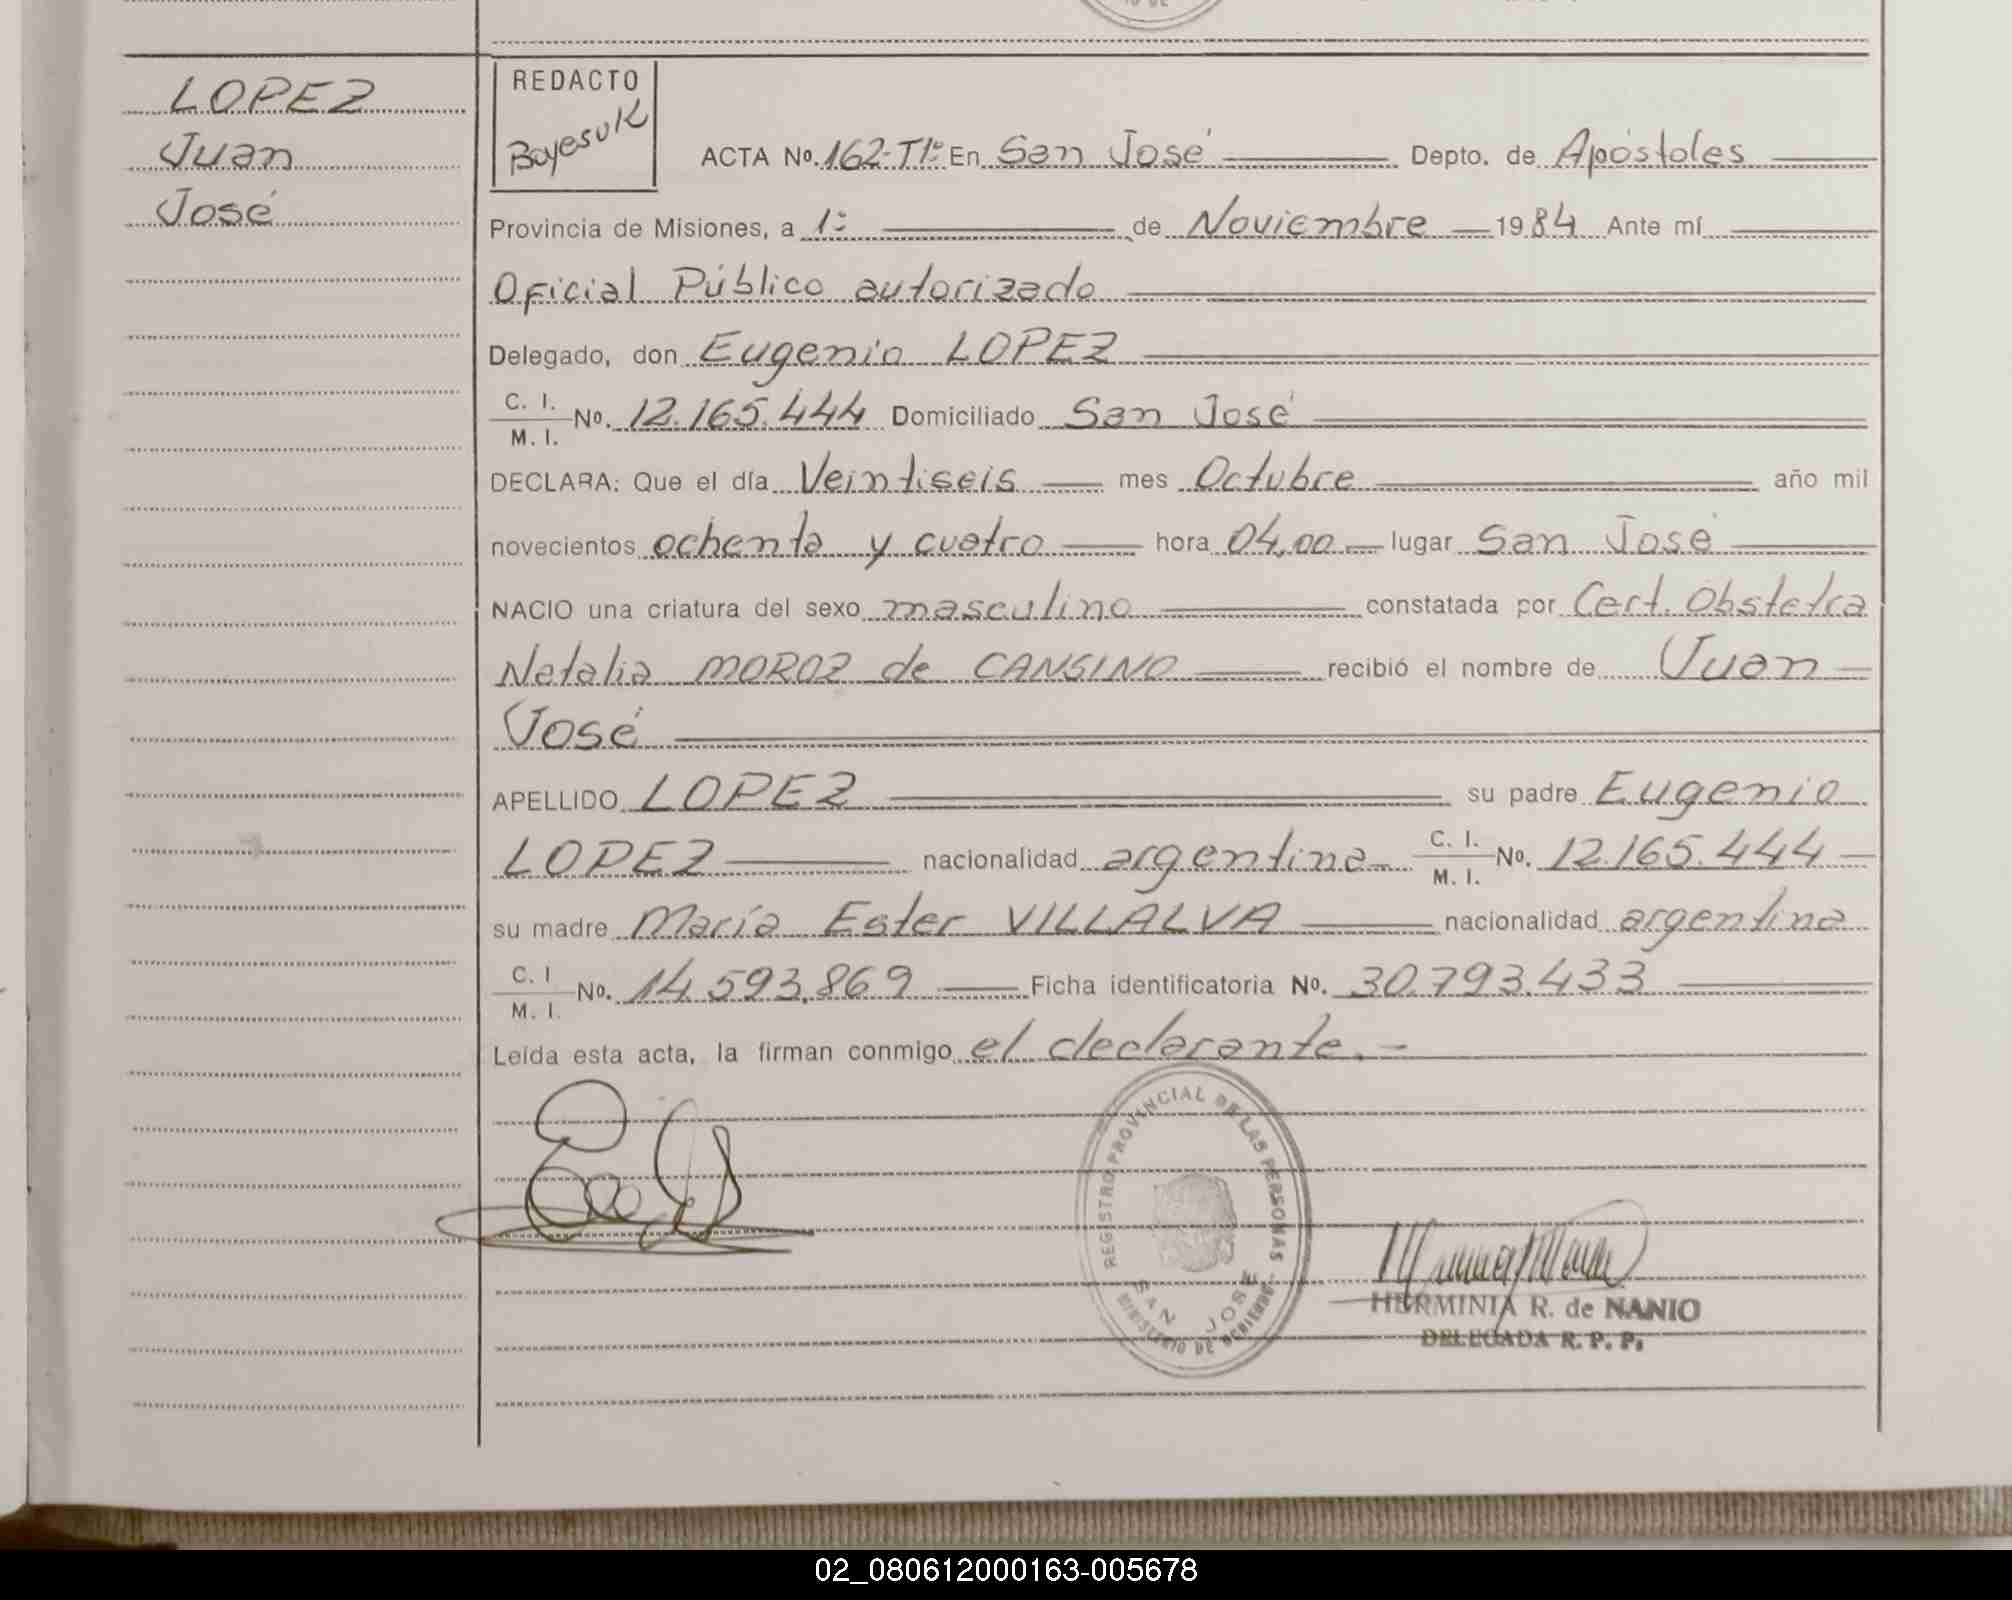 LOPEZ
Juan
José
REDACTO
Boyesuk
ACTA No. 162-T1º En San José Depto. de Apóstoles
Provincia de Misiones, a 1º de Noviembre 1984 Ante mí
Oficial Público autorizado
Delegado, don Eugenio LOPEZ
C. I. / M. I. No. 12.165.444 Domiciliado San José
DECLARA: Que el día Veintiseis mes Octubre año mil
novecientos ochenta y cuatro hora 04,00 lugar San José
NACIO una criatura del sexo masculino constatada por Cert. Obstetra
Natalia MOROZ de CANSINO recibió el nombre de Juan
José
APELLIDO LOPEZ su padre Eugenio
LOPEZ nacionalidad argentina C. I. / M. I. No. 12.165.444
su madre María Ester VILLALVA nacionalidad argentina
C. I / M. I. No. 14.593.869 Ficha identificatoria No. 30.793.433
Leída esta acta, la firman conmigo el declarante.-
REGISTRO PROVINCIAL DE LAS PERSONAS
SAN JOSE
MINISTERIO DE GOBIERNO
HERMINIA R. de NANIO
DELEGADA R. P. P.
02_080612000163-005678